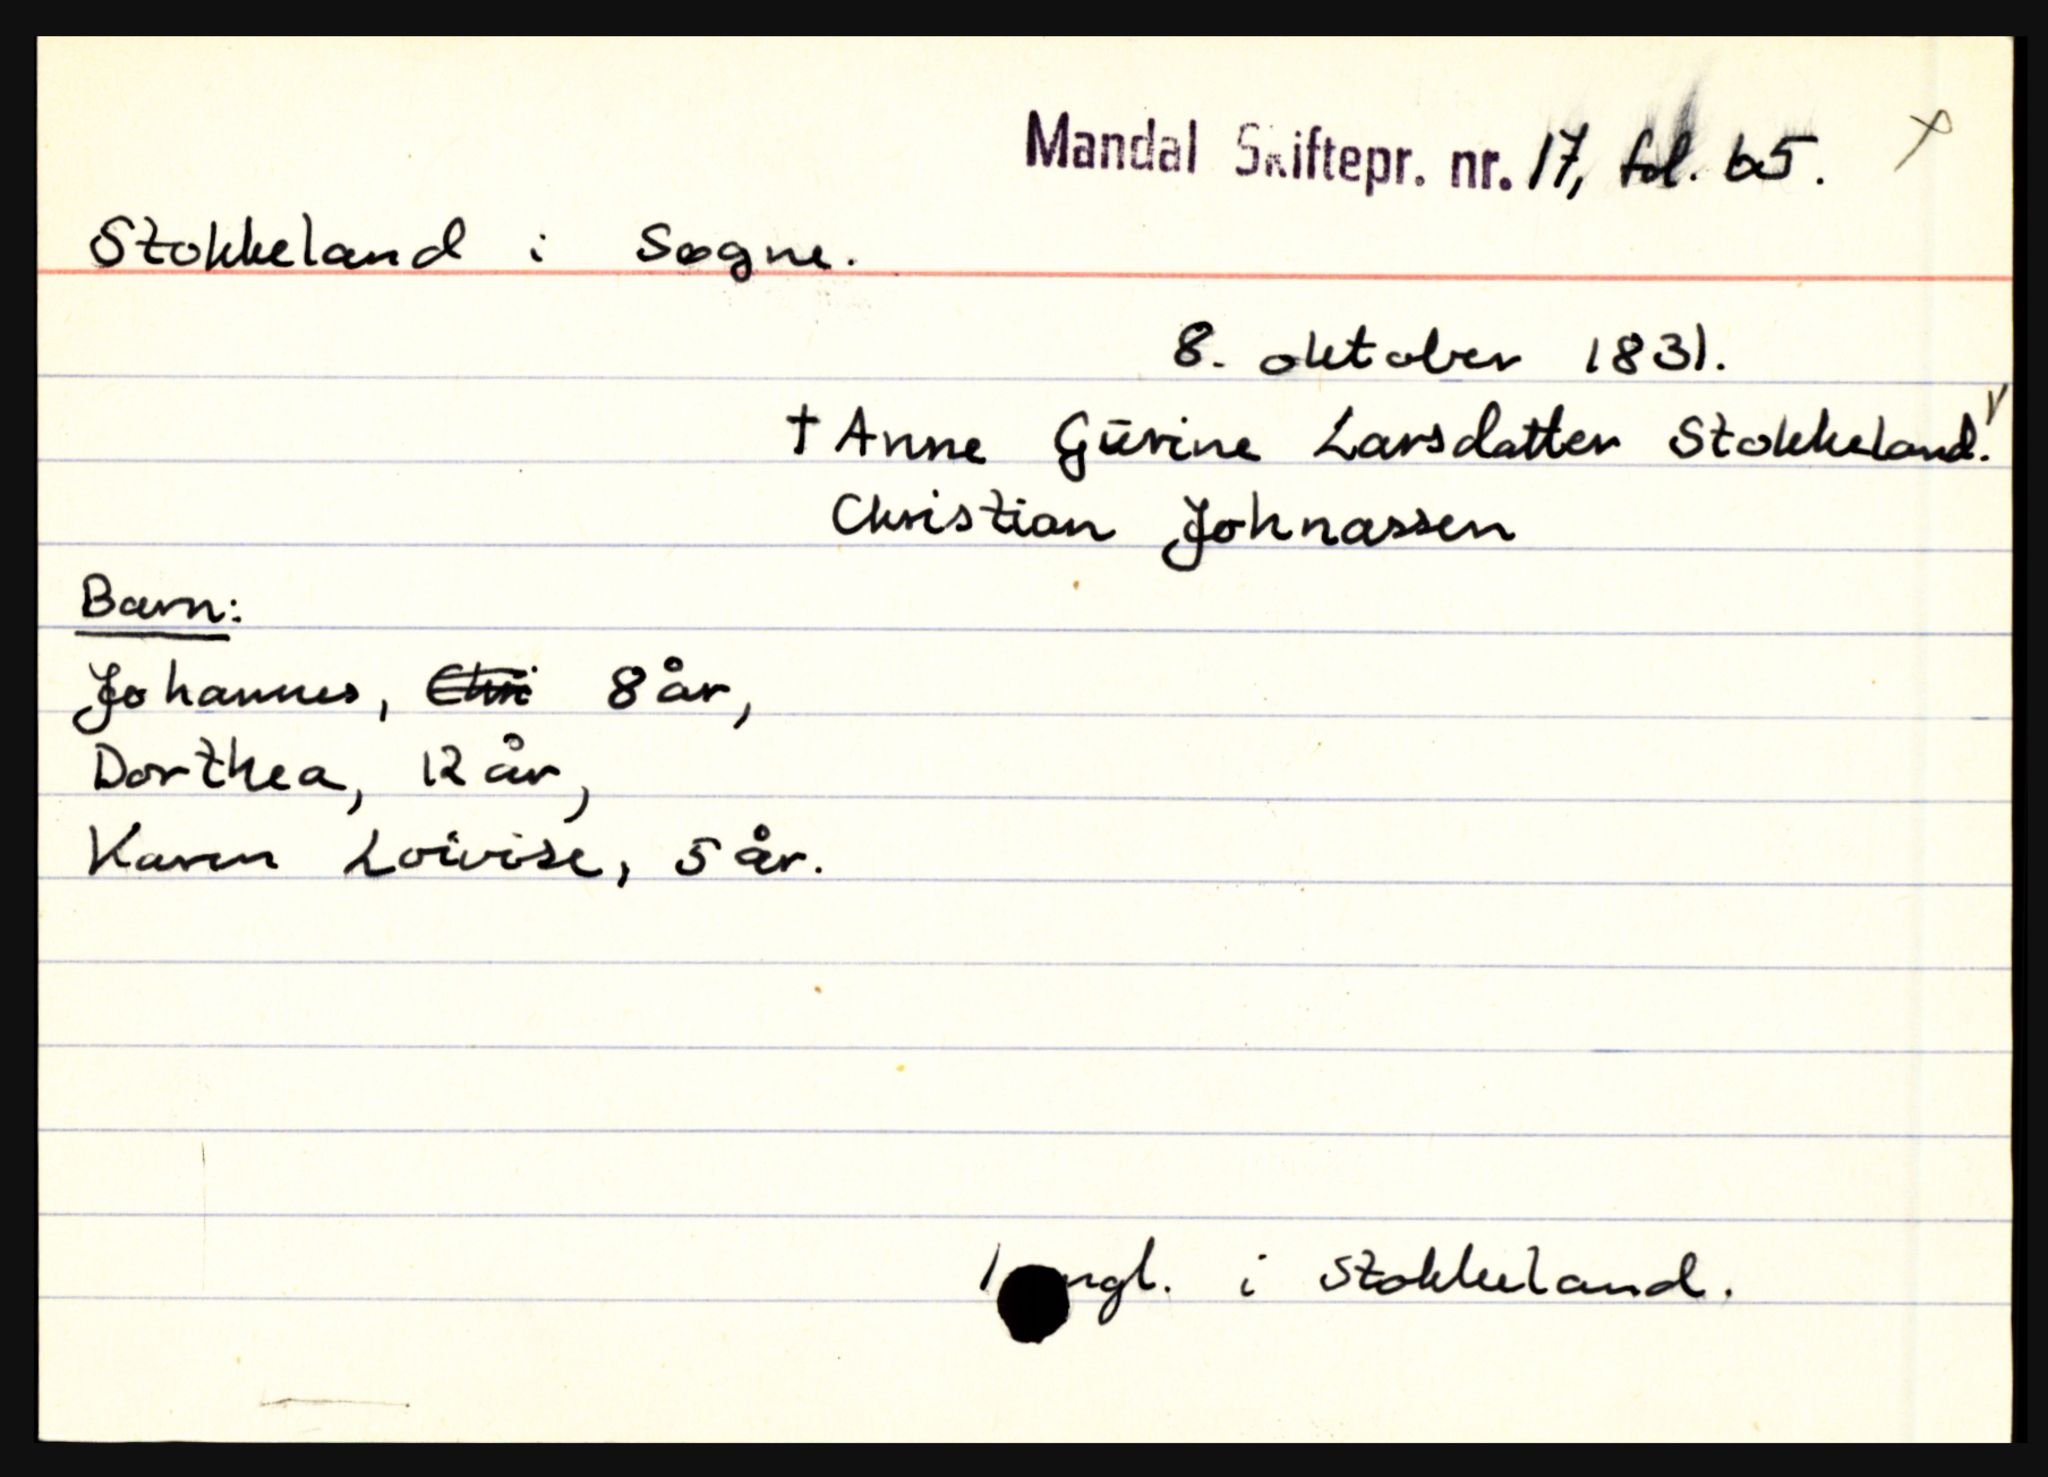 Mandal Skiftepr. nr. 17, fol. 65.
Stokkeland i Søgne.
8. oktober 1831.
† Anne Gürine Larsdatter Stokkeland.
Christian Johnassen
Barn:
Johannes, Chri 8 år,
Dorthea, 12 år,
Karen Lovise, 5 år.
1 ngl. i Stokkeland.